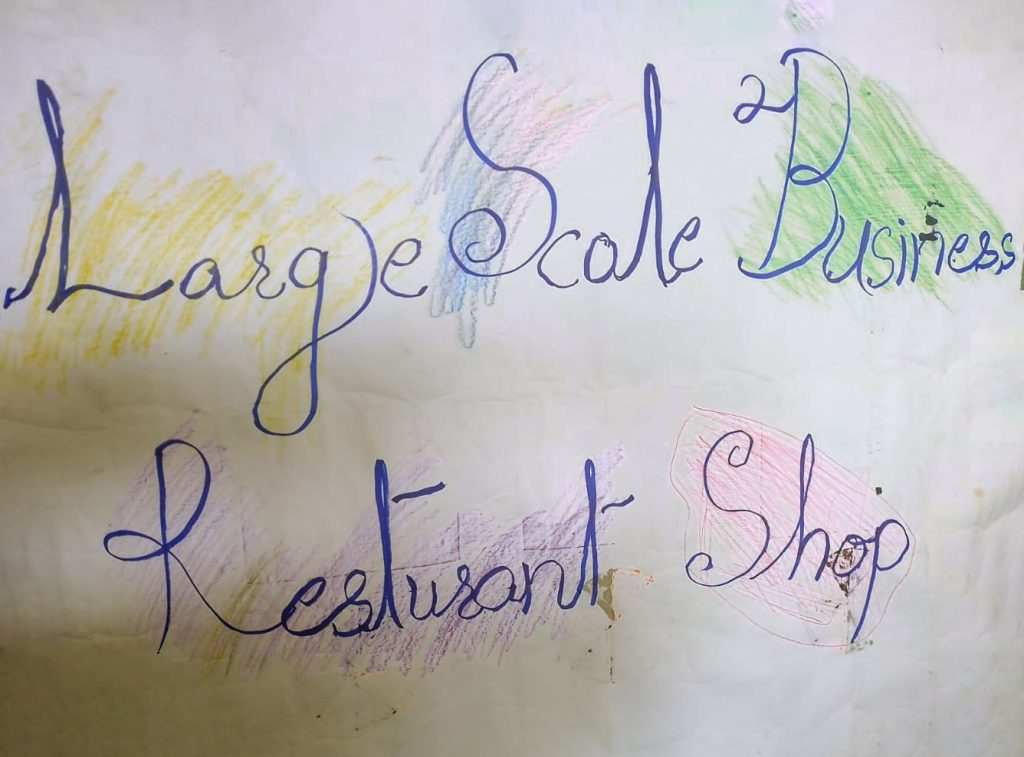 Large Scale Business
Resturant Shop